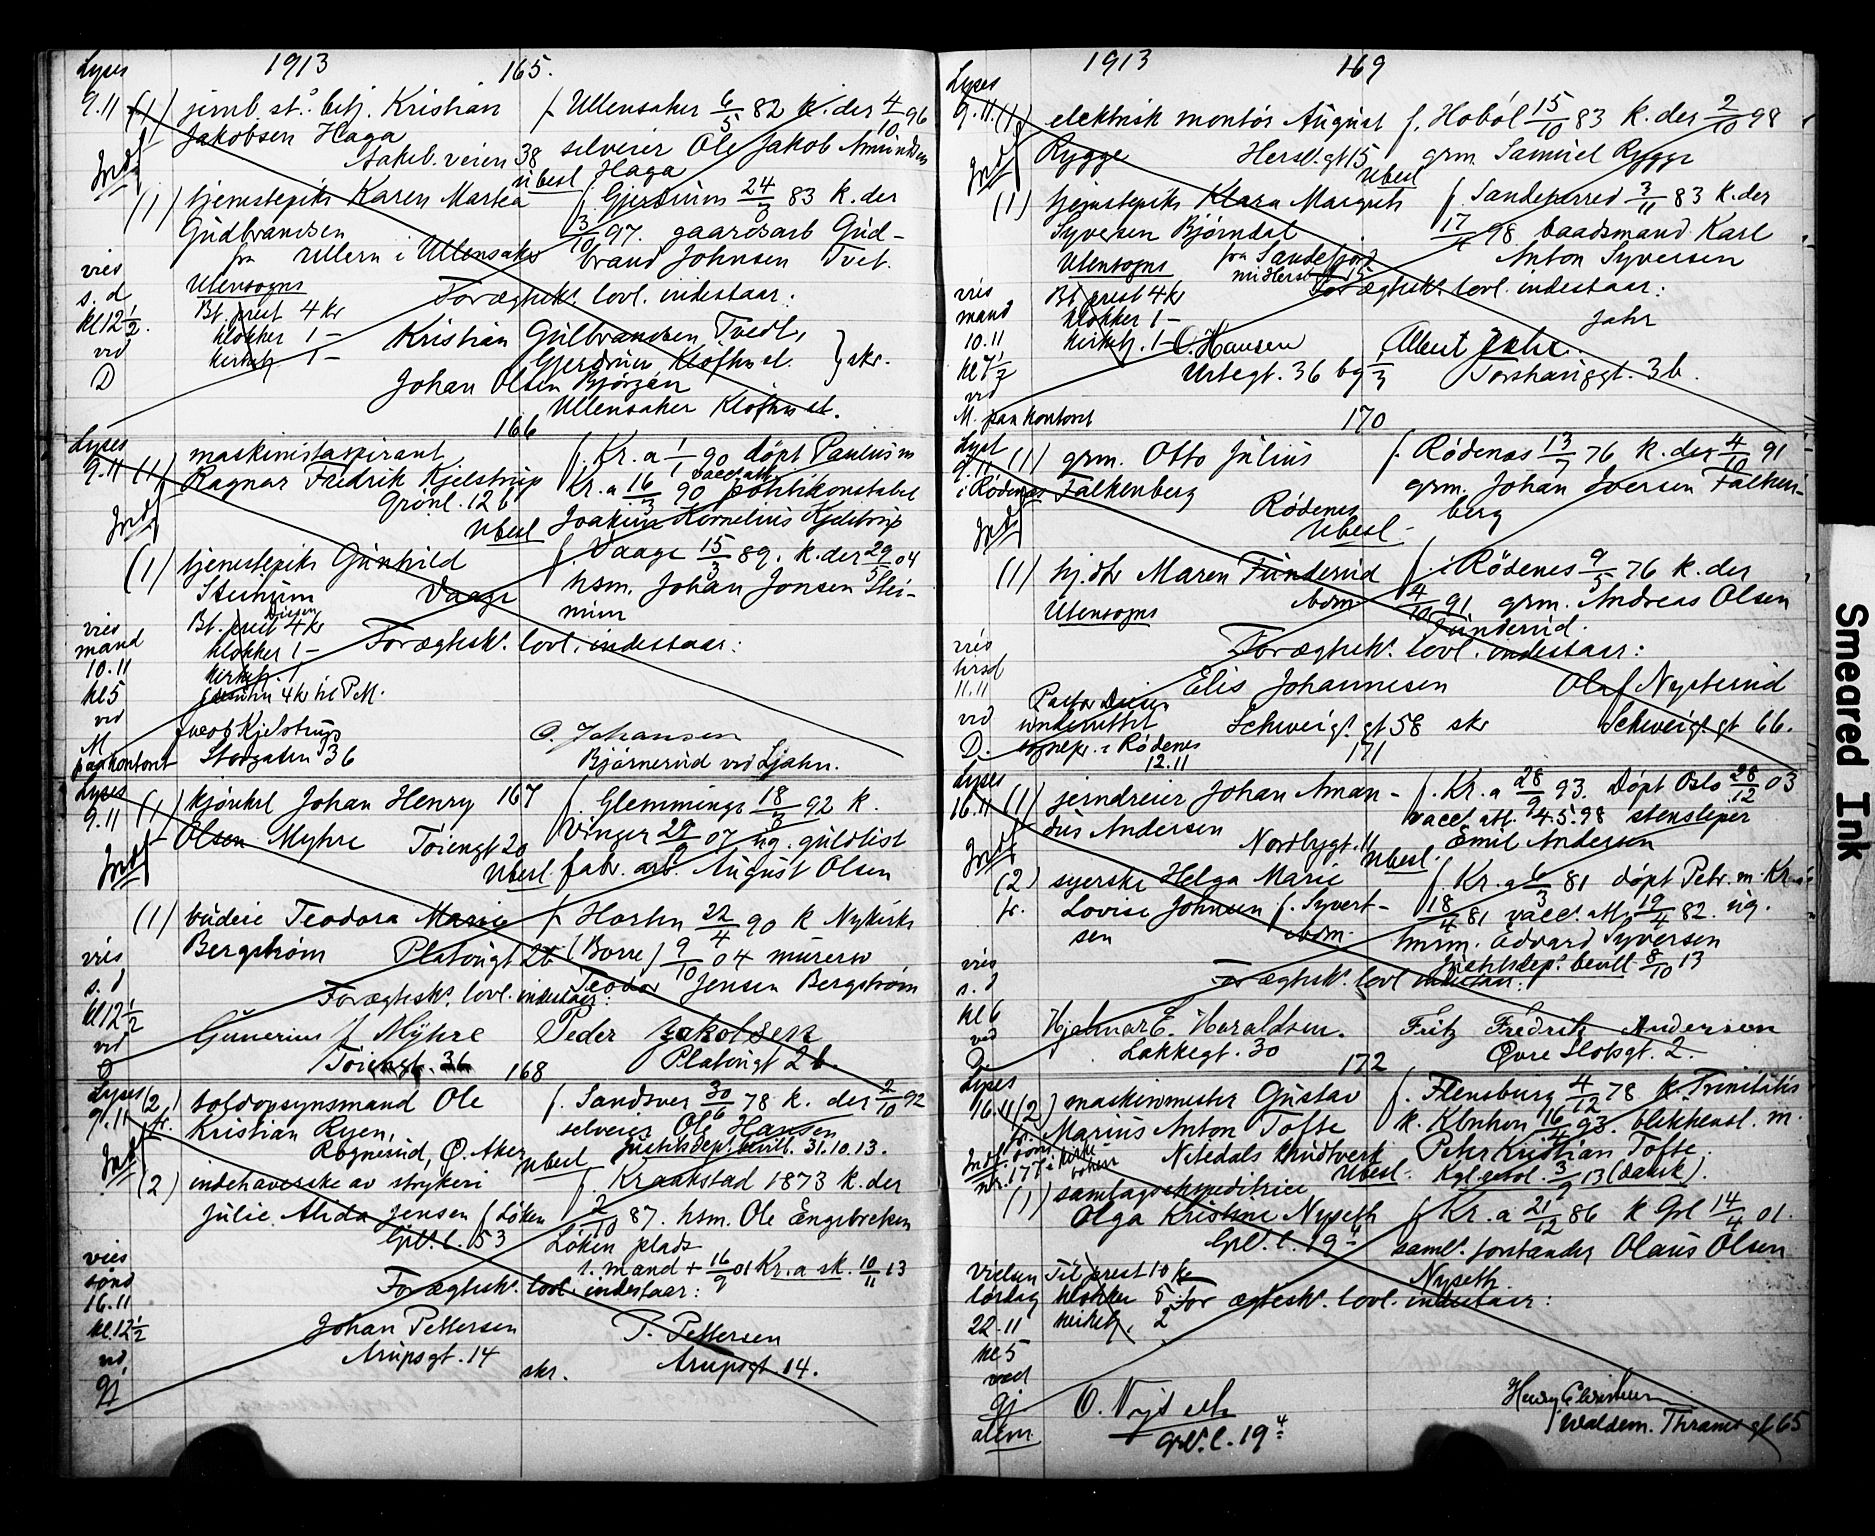 1913
165.
Lyses
9.11 (1) jernb. st.s betj. Kristian
Jakobsen Haga
Jakob. veien 38
Indf
f. Ullensaker 6/5 82 k. der 4/10 96
selveier Ole Jakob Amundsen
Ubesl Haga
(1) tjenestepike Karen Martea
Gudbrandsen
fra Ullern i Ullensaker
f. Gjerdrum 24/3 83 k. der
3/10 97. gaardsarb Gud-
brand Johnsen Tvet.
vies
s. d
kl 12 1/2.
ved
D
Utensogns
Bt. prest 4 kr
klokker 1 -
kirketj 1 -
For ægtesk. lovl. indestaar:
Kristian Gulbrandsen Tvedt,
Gjerdrum, Kløften st. } skr.
Johan Olsen Bjørgen
Ullensaker Kløften st.
166
Lyses
9.11 (1) maskinistaspirant
Ragnar Fredrik Kjelstrup
Grønl. 12 b
Indf
f. Kr.a 1/1 90 døpt Paulus m
Kr.a 16/3 90 vacc. att. politikonstabel
Ubesl Joakim Kornelius Kjelstrup
(1) tjenestepike Gunhild
Steinum Vaage
f. Vaage 15/3 89. k. der 29/5 04
hsm. Johan Jonsen Stei-
num
vies
mand
10.11
kl 5
ved
M
paa kontoret
Bt. prest Diesen 4 kr
klokker 1 -
kirketj. 1
4 kr til P.M.
For ægtesk. lovl. indestaar:
Jacob Kjelstrup
Storgaten 36
O. Johansen
Bjørnerud ved Ljahn.
167
Lyses
9.11 (1) kjørekl Johan Henry
Olsen Myhre Tøiengt 20
Indf
f. Glemminge 18/3 92 k.
Vinger 29/9 07 ug. guldlist
Ubesl. fabr. arb. August Olsen
(1) budeie Teodora Marie
Bergstrøm Platougt 2b
f. Horten 22/4 90 k Nykirke
(Borre) 9/10 04 murersv
Teodor Jensen Bergstrøm
vies
s. d
kl 12 1/2
ved
For ægtesk. lovl. indestaar:
Gunerius J Myhre
Tøiengt. 36
Peder Jakobsen
Platougt 2 b.
168
Lyses
9.11 (2) fr. toldopsynsmand Ole
Kristian Ryen,
Rognerud, Ø. Aker
Indf
f. Sandsver 30/6 78 k. der 2/10 92
selveier Ole Hansen
Justitsdept. bevill. 31.10.13.
Ubesl
(2) indehaverske av strykeri
Julie Alida Jensen f Løken
Grül. l. 53
f. Kraakstad 1873 k. der
2/10 87. hsm. Ole Engebretsen
Løken plads
1. mand + 16/9 01 Kr.a sk. 10/11 13
vies
sønd
16.11
kl. 12 1/2
ved
Gj
For ægtesk. lovl. indestaar:
Johan Pettersen
Arupsgt. 14
P. Pettersen
skr. Arupsgt. 14.
1913
169
Lyses
9.11. (1) elektrisk montør August
Rygge Hersl. gt 15
Indf
f. Hobøl 15/10 83 k. der 2/10 98
grm. Samuel Rygge
Ubesl
(1) tjenestepike Klara Margrete
Syversen Bjørndal
fra Sandefjord
midl Hersl. 15
f. Sandeherred 3/11 83 k. der
17/4 98 baadsmand Karl
Anton Syversen
Utensogns
vies
mand
10.11
kl 7 1/2
ved
M. paa kontoret
Bt. prest 4 kr
klokker 1 -
kirketj. 1 -
For ægtesk. lovl. indestaar:
O. Hansen
Urtegt. 36 bg 1/3
Jahr
Albert Jahr.
Torshauggt. 3 b.
170
Lyst
9.11 (1) grm. Otto Julius
i Rødenes Falkenberg
Rødenes
Indf
f. Rødenes 13/7 76 k. der 4/10 91
grm. Johan Iversen Falken-
berg
Ubesl.
(1) hj. dtr Maren Funderud
ibdm
f. i Rødenes 9/5 76 k. der
4/10 91. grm. Andreas Olsen
Funderud.
Utensogns
vies
tirsd
11.11
ved
D.
For ægtesk. lovl. indestaar:
Pastor Diesen
underrettet
sognepr. i Rødenes
12.11
Elis Johannesen
Schweig. gt 58 skr
Olaf Nysterud
Schweig. gt 66.
171
Lyses
16.11 (1) jerndreier Johan Aman-
dus Andersen
Nordbygt. 11
Indf
f. Kr.a 28/9 93. Døpt Oslo 28/12 03
vacc. att. 14.5.98 stensliper
Ubesl. Emil Andersen
(2) fr. syerske Helga Marie
Lovise Johnsen f. Syvert-
sen ibdm.
f. Kr.a 6/3 81 døpt Petr. m. Kr.a
18/4 81 vacc. att. 19/4 82. ug.
hmrm. Edvard Syversen
Justitsdept. bevill 8/10 13
vies
s. d
kl 6
ved
D.
For ægtesk. lovl indestaar:
Hjalmar E. Haraldsen.
Lakkegt. 30
Fritz Fredrik Andersen
Øvre Slotsgt. 2.
172
Lyses
16.11 (2) fr. maskinmester Gustav
Marius Anton Tofte
Nitedals Krudtverk
Indf. som
nr. 177 i kirke
boken
f. Flensburg 4/12 78 k. Trinitatis
k. Kbnhvn 16/4 93. blikkensl. m.
Peter Kristian Tofte.
Ubesl. Kgl. resol. 3/9 13 (dansk).
(1) samlagsekspeditrice
Olga Kristine Nyseth
Grül. l. 19 4
f. Kr.a 21/12 86 k Grl 14/4 01.
saml. forstander Olaus Olsen
Nyseth.
vielsen
lørdag
22.11
kl 5
ved
Gj
alene
Til prest 10 kr
klokker 5
kirketj. 2
For ægtesk. lovl. indestaar:
O. Nyseth
Grül. l. 19 4
Waldem. Thranes gt 65
Smeared Ink